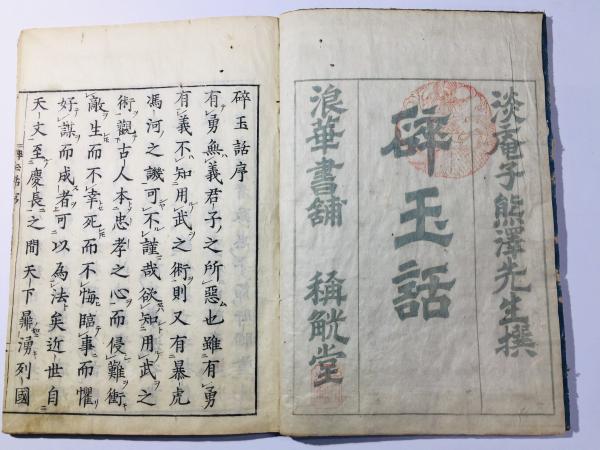 淡菴子熊澤先生撰
碎玉話
浪華書舖 稱觥堂
碎玉話序
有勇無義君子之所惡也雖有勇
有義不知用武之術則又有暴虎
馮河之譏可不謹哉欲知用武之
術觀古人本忠孝之心而侵難衝
敵生而不幸死而不悔臨事而懼
好謀而成者可以為法矣近世自
天文至慶長之間天下鼎湧列國